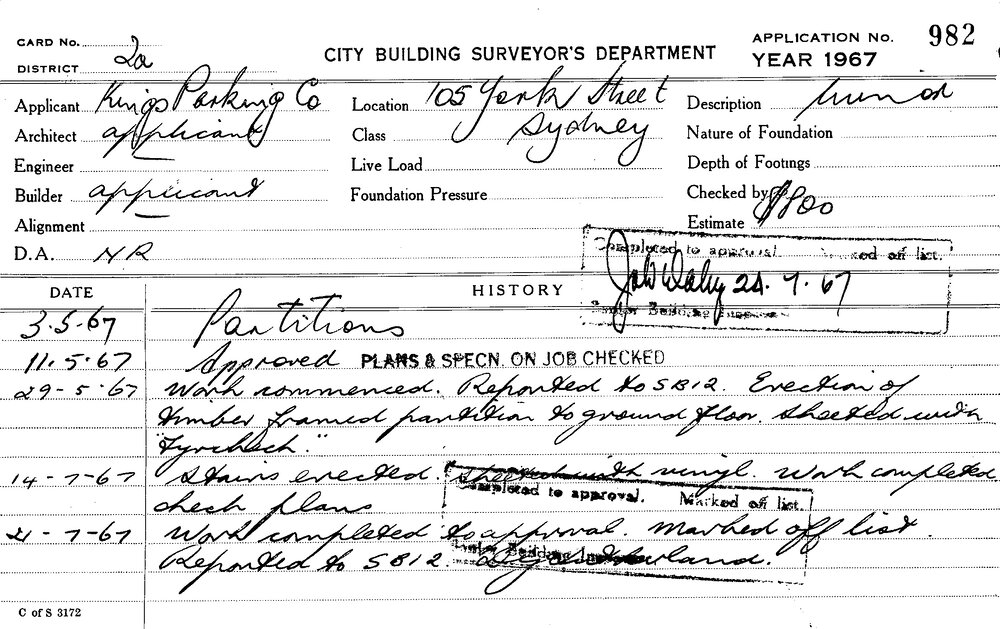 CARD No.
DISTRICT 2a
CITY BUILDING SURVEYOR'S DEPARTMENT
APPLICATION No. 982
YEAR 1967
Applicant Kings Parking Co
Location 105 York Street
Sydney
Description minor
Architect applicant
Class
Nature of Foundation
Engineer
Live Load
Depth of Footings
Builder applicant
Foundation Pressure
Checked by
Estimate $800
Alignment
D.A. NR
Completed to approval. Marked off list.
24.7.67
Senior Building Inspector
DATE
HISTORY
3.5.67 Partitions
11.5.67 Approved PLANS & SPECN. ON JOB CHECKED
29-5-67 Work commenced. Reported to SB12. Erection of
timber framed partition to ground floor. Sheeted with
14-7-67 Stairs erected. Sheeted with vinyl. Work completed
check plans
Completed to approval. Marked off list.
21-7-67 Work completed to approval. Marked off list.
Reported to SB12.
C of S 3172